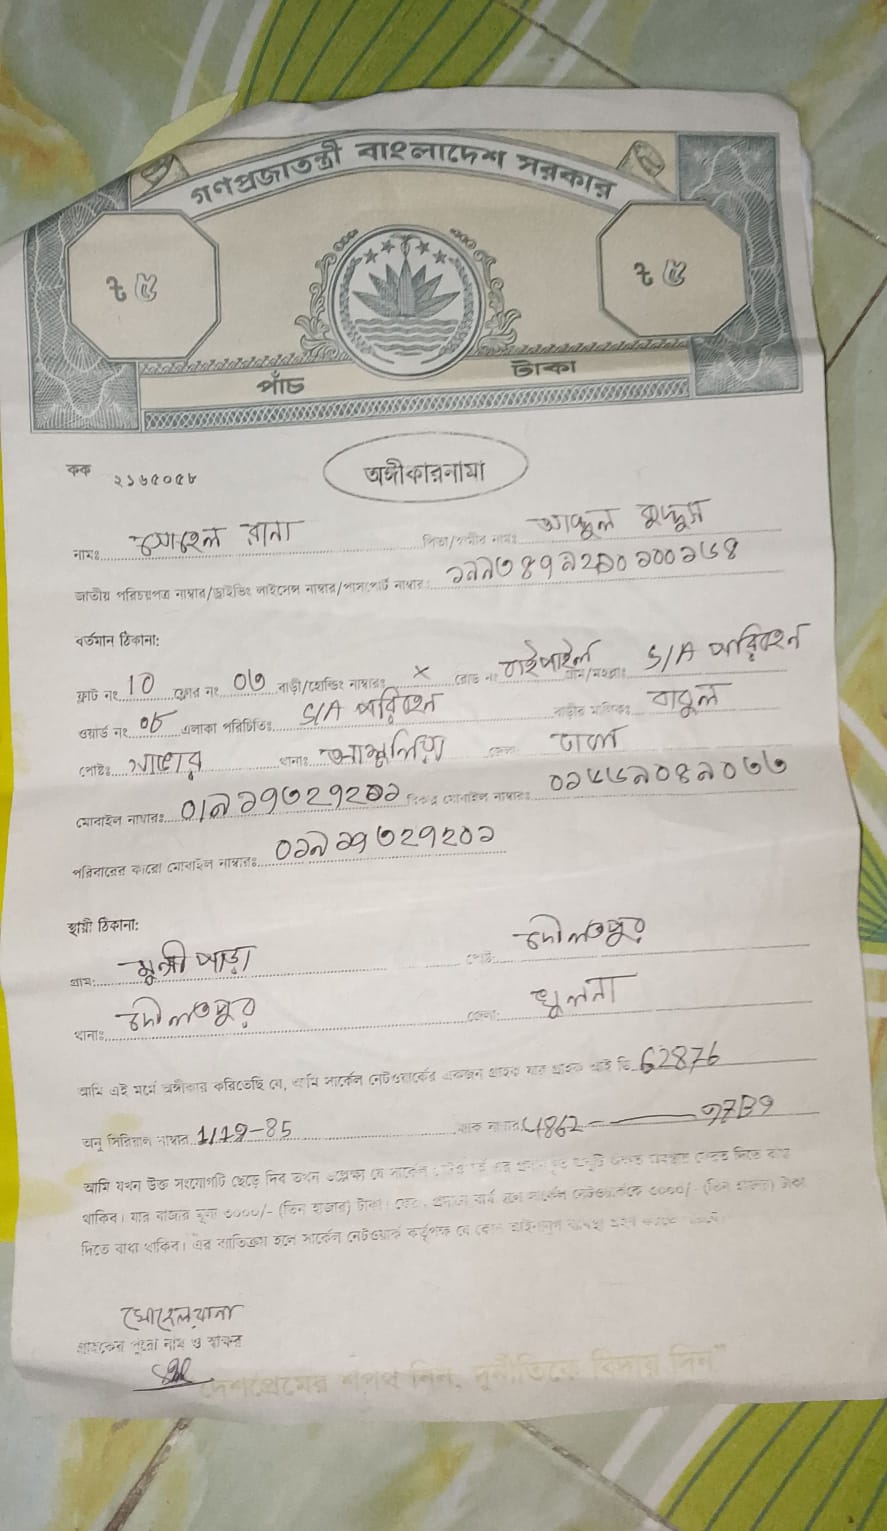 গণপ্রজাতন্ত্রী বাংলাদেশ সরকার
৳ ৫ ৳ ৫
পাঁচ টাকা
কক ২১৬৫০৫৮
অঙ্গীকারনামা
নামঃ সোহেল রানা পিতা/স্বামীর নামঃ আব্দুল কুদ্দুস
জাতীয় পরিচয়পত্র নাম্বার/ড্রাইভিং লাইসেন্স নাম্বার/পাসপোর্ট নাম্বার:
বর্তমান ঠিকানা:
ফ্লাট নং 10 ফ্লোর নং ০৩ বাড়ী/হোল্ডিং নাম্বারঃ X রোড নং বাইপাইল গ্রাম/মহল্লাঃ S/A পরিবহন
ওয়ার্ড নং ০৮ এলাকা পরিচিতিঃ S/A পরিবহন বাড়ীর মালিকঃ বাবুল
পোষ্টঃ সাভার থানাঃ আশুলিয়া জেলা ঢাকা
মোবাইল নাম্বারঃ বিকল্প মোবাইল নাম্বারঃ
পরিবারের কারো মোবাইল নাম্বারঃ ০১৯১৭৩২৭২০১
স্থায়ী ঠিকানা:
গ্রাম: মুন্সী পাড়া পোষ্ট: দৌলতপুর
থানাঃ দৌলতপুর জেলা: খুলনা
আমি এই মর্মে অঙ্গীকার করিতেছি যে, আমি সার্কেল নেটওয়ার্কের একজন গ্রাহক যার গ্রাহক আই ডি 62876
অনু সিরিয়াল নাম্বার 1/19-85 ম্যাক নাম্বার 4862 97B9
আমি যখন উক্ত সংযোগটি ছেড়ে দিব তখন সার্কেল ফেরত দিতে বাধ্য
থাকিব। যার বাজার মূল্য ৩০০০/- (তিন হাজার) টাকা। সার্কেল নেটওয়ার্ককে ৩০০০/- (তিন হাজার) টাকা
দিতে বাধ্য থাকিব। এর ব্যতিক্রম হলে সার্কেল নেটওয়ার্ক কর্তৃপক্ষ যে কোন আইনানুগ ব্যবস্থা
সোহেল রানা
গ্রাহকের পুরো নাম ও স্বাক্ষর
দেশপ্রেমের শপথ নিন, দুর্নীতিকে বিদায় দিন"